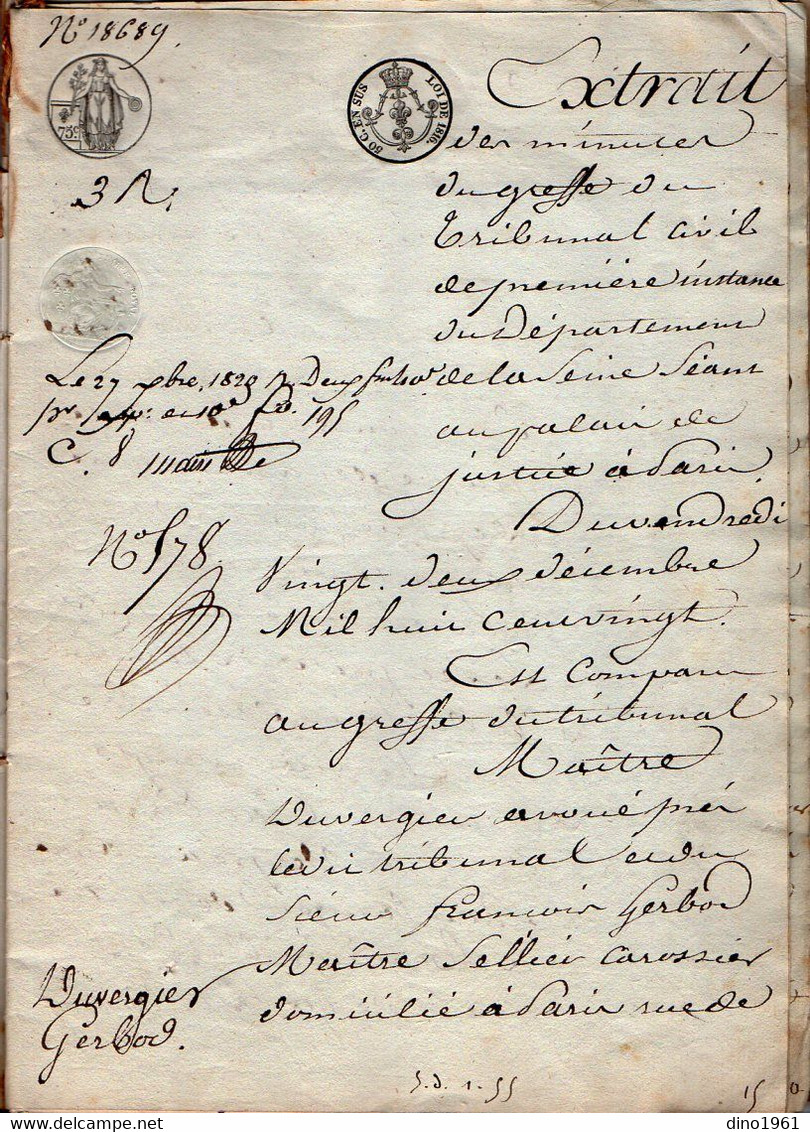 N° 18689.
75c
50 C. EN SUS LOI DE 1816.
Extrait
des minutes
du greffe du
Tribunal civil
de première instance
du Département
de la Seine Séant
au palais de
justice à Paris
3 R.
Le 27 xbre 1820 Deux
195
C. 8
N° 578.
Du vendredi
Vingt. deux décembre
Mil huit cent vingt.
Est Comparu
au greffe du tribunal
Maître
Duvergier avoué près
ledit tribunal et du
Sieur françois Gerbod
Maître Sellier Carossier
domicilié à Paris rue de
Duvergier
Gerbod.
5. d. 1. 55
15
dino1961